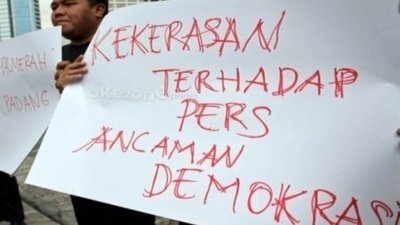 PALMERAH
PADANG
KEKERASAN
TERHADAP
PERS
ANCAMAN
DEMOKRASI
okezone